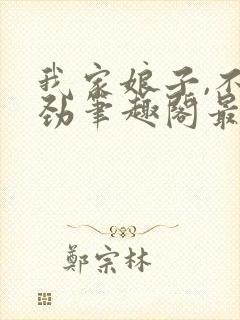 我家娘子,不
劲笔趣阁最
鄭宗林